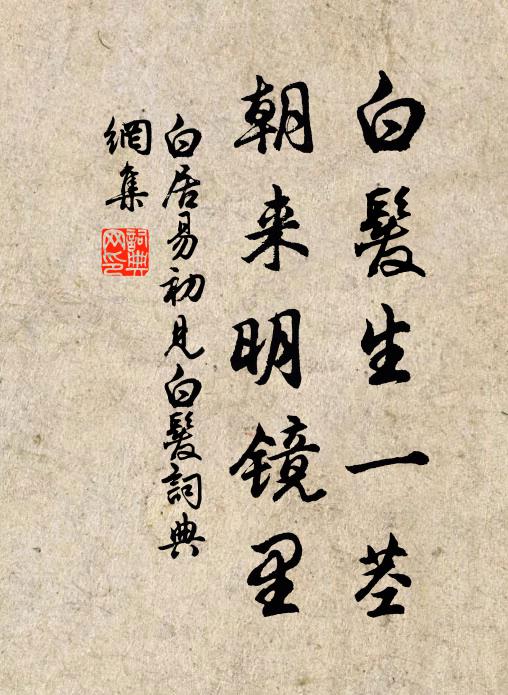 白髮生一茎
朝来明镜里
白居易初見白髮詞典
網集
詞典
网印